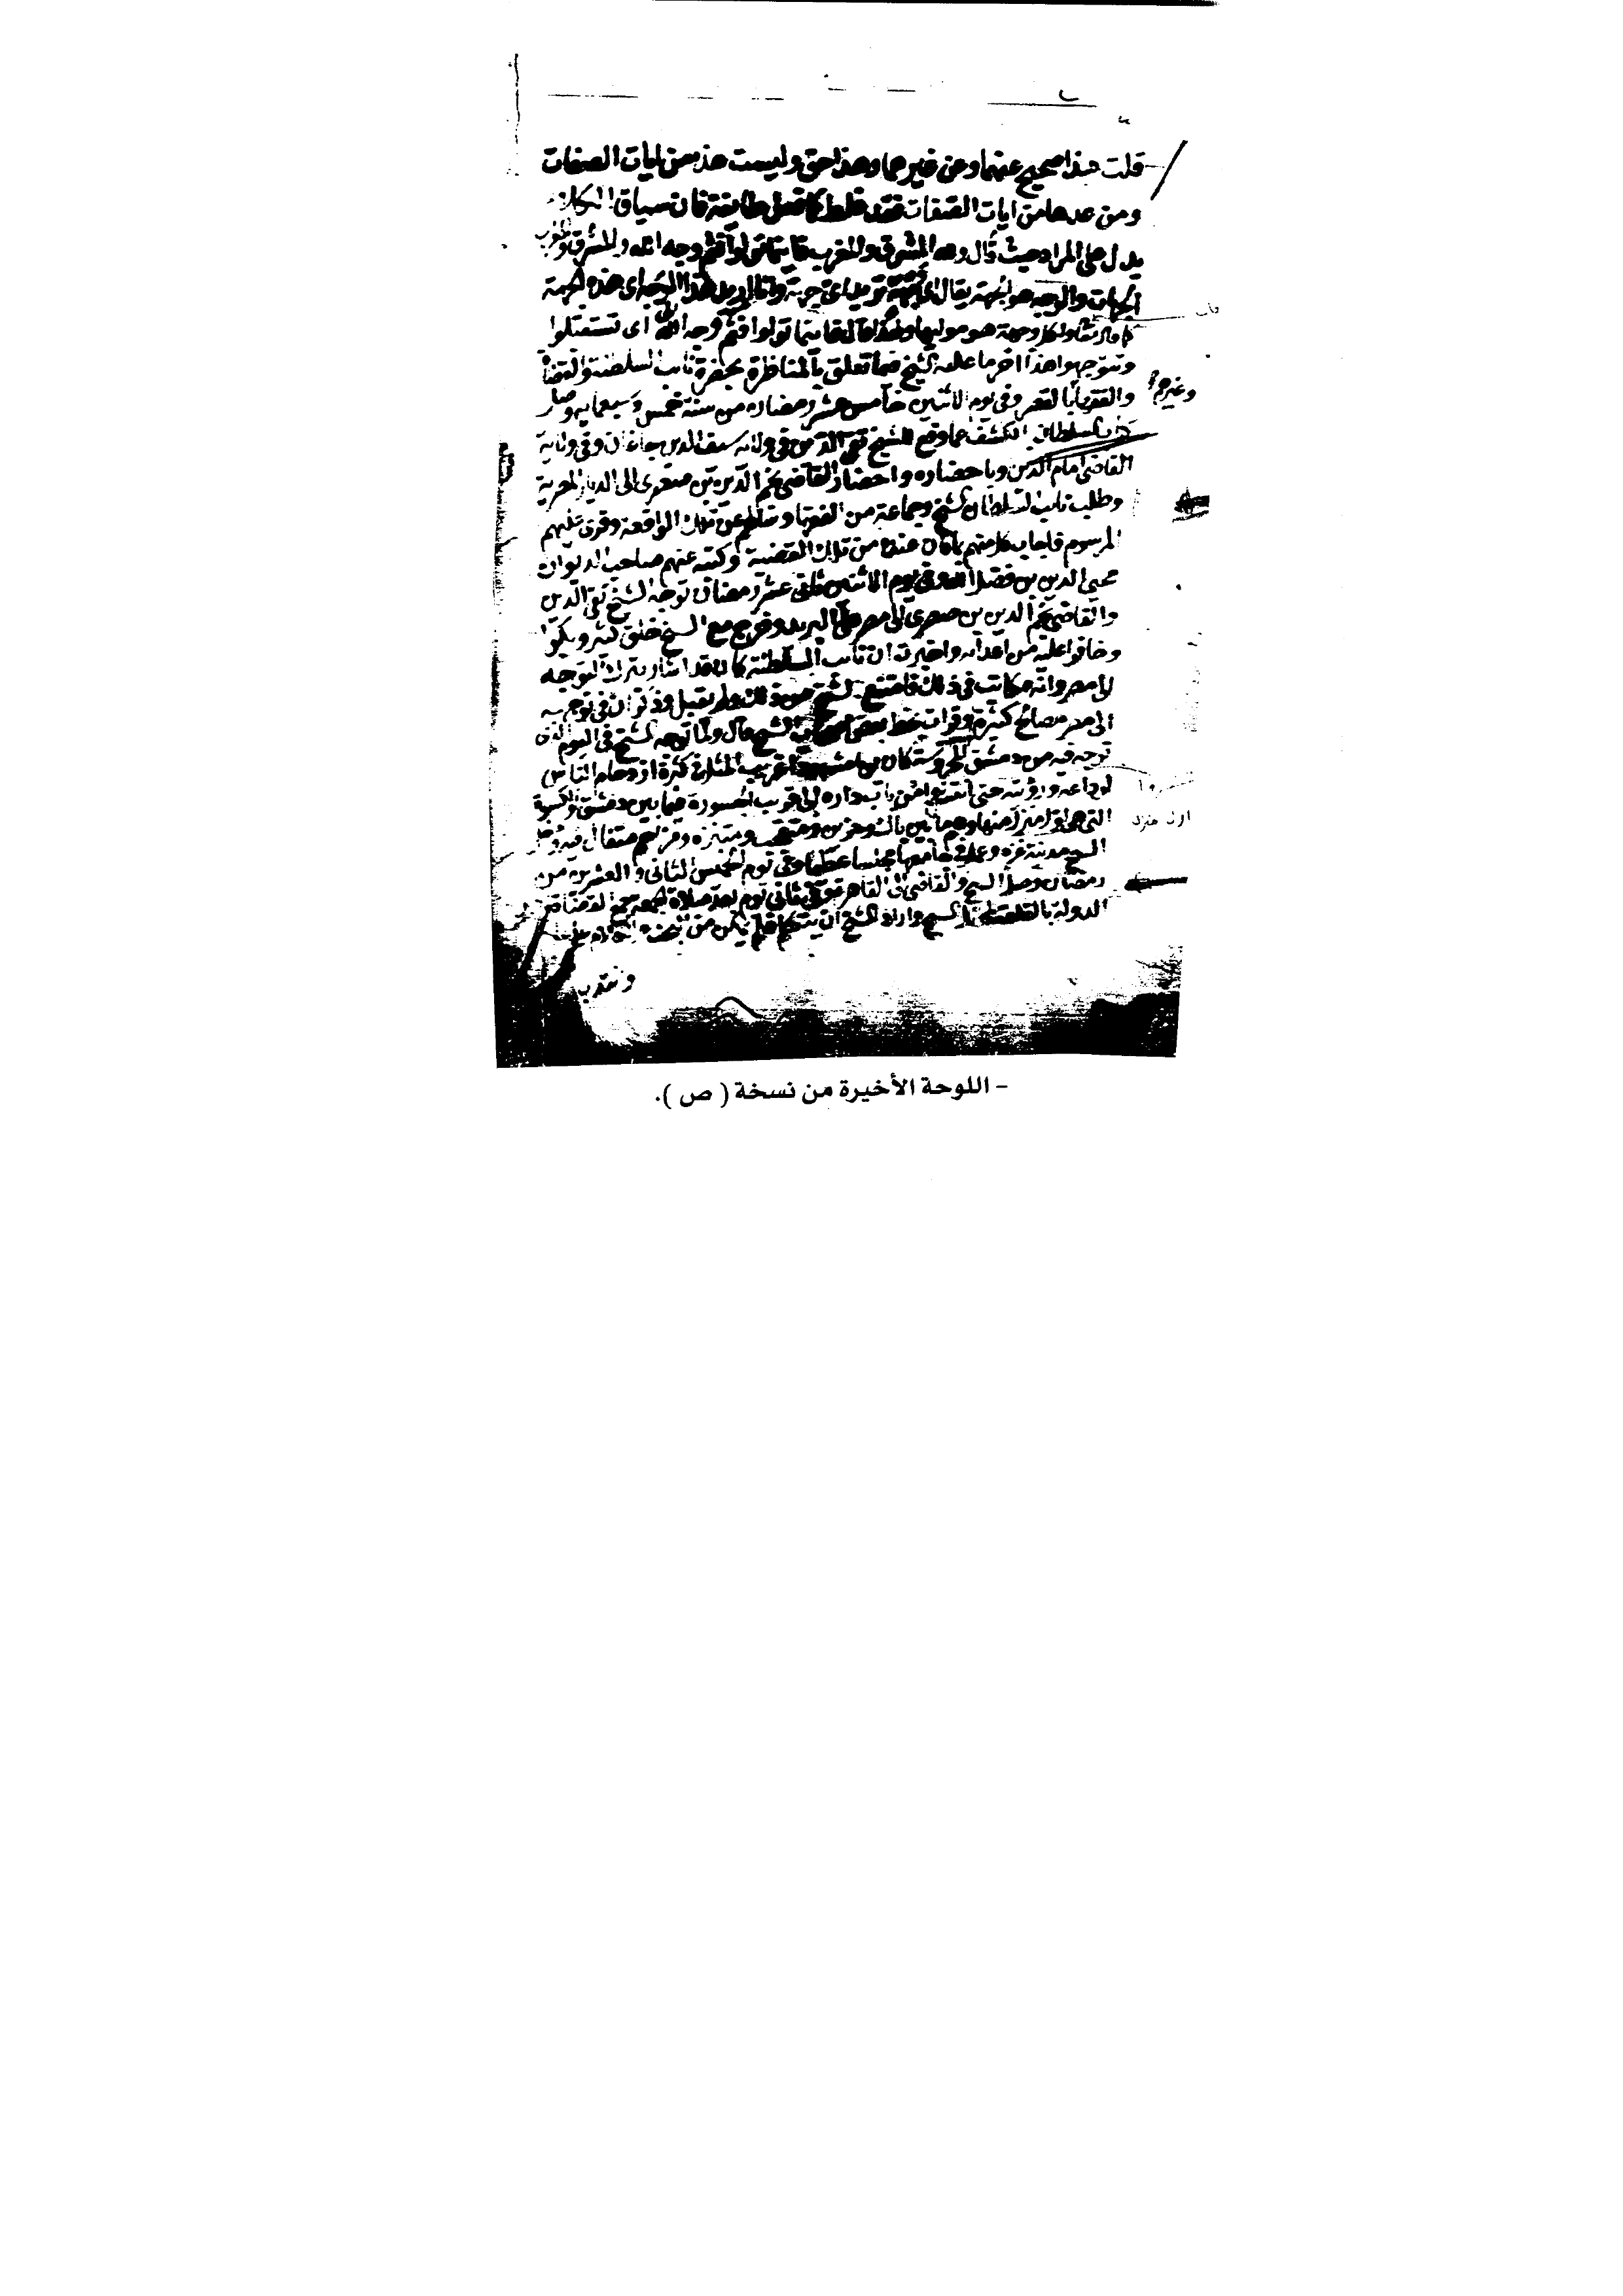 قلت هذا صحيح عنهما وعن غيرهما وهذا حق وليست هذه من ايات الصفات
ومن عدها من ايات الصفات فقد غلط كما فعل طايفة فان سياق الكلام
يدل على المراد حيث قال ولله المشرق والمغرب فاينما تولوا فثم وجه الله والمشرق والمغرب
الجهات والوجه هو الجهة يقال اي وجهة تريد اي جهة وانا اريد هذا الوجه اي هذه الجهة
كما قال تعالى ولكل وجهة هو موليها ولهذا قال فاينما تولوا فثم وجه الله اي تستقبلوا
وتتوجهوا هذا اخر ما علقه الشيخ فيما تعلق بالمناظرة بحضرة نايب السلطنة والقضاة
وغيرهم
والفقهاء بالقصر وفي يوم الاثنين خامس عشر رمضان من سنة خمس وسبعمايه وصل
السلطان الكشف عما وقع للشيخ تقي الدين في ولاية سيف الدين جاغان وفي ولاية
القاضي امام الدين وباحضاره واحضار القاضي نجم الدين بن صصرى الى الديار المصرية
وطلب نايب السلطان الشيخ وجماعة من الفقها وسالهم عن تلك الواقعة وقرى عليهم
المرسوم فاجاب كل منهم بما كان عنده من تلك القضية وكتبه عنهم صاحب الديوان
محيي الدين بن فضل الله وفي يوم الاثنين ثاني عشر رمضان توجه الشيخ تقي الدين
والقاضي نجم الدين بن صصرى الى مصر على البريد وخرج مع الشيخ خلق كثير وبكوا
وخافوا عليه من اعدائه واخبرت ان نايب السلطنة كان قد اشار بترك التوجه
الى مصر وانه مكاتب في ذلك فامتنع الشيخ من ذلك ولم يقبل وذكر ان في توجهه
الى مصر مصالح كثيرة وقرات بخط بعض اصحاب الشيخ قال ولما توجه الشيخ في اليوم الذي
توجه فيه من دمشق المحروسة كان يوما مشهودا غريب المثل في كثرة ازدحام الناس
لوداعه ورؤيته حتى انتشروا من باب داره الى قريب الجسورة فيما بين دمشق والكسوة
التي هي اول منزلة منها وهم ما بين باك وحزين ومتعجب ومتنزه ومزاحم متغال فيه ودخل
الشيخ مدينة غزة وعمل في جامعها مجلسا عظيما وفي يوم الخميس الثاني والعشرين من
رمضان وصل الشيخ والقاضي الى القاهرة وفي ثاني يوم بعد صلاة الجمعة جمع القضاة
الدولة بالقلعة الشيخ واراد الشيخ ان يتكلم فلم يمكن من البحث والكلام على
- اللوحة الأخيرة من نسخة ( ص ).